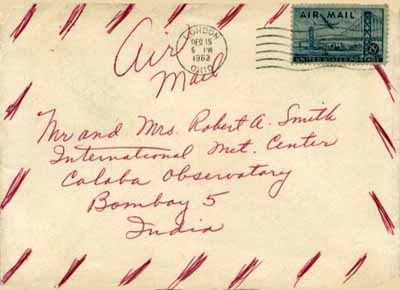 LONDON
DEC 15
6 PM
1963
OHIO
AIR MAIL
UNITED STATES POSTAGE
Air
Mail
Mr and Mrs. Robert A. Smith
International Met. Center
Colaba Observatory
Bombay 5
India